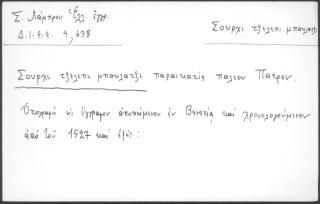 Σ. Λάμπρου Ἑλλ. ἔγγρ.
Δ.Ι.Ε.Ε. 4, 638
Σουρχι τζελεπι μπαλατζι
Σουρχι τζελεπι μπαλατζι παραικατις παλεον Πατρον.
Ὑπογραφὴ εἰς ἔγγραφον ἀποκείμενον ἐν Βενετίᾳ καὶ χρονολογούμενον
ἀπὸ τοῦ 1527 καὶ ἑξῆς: